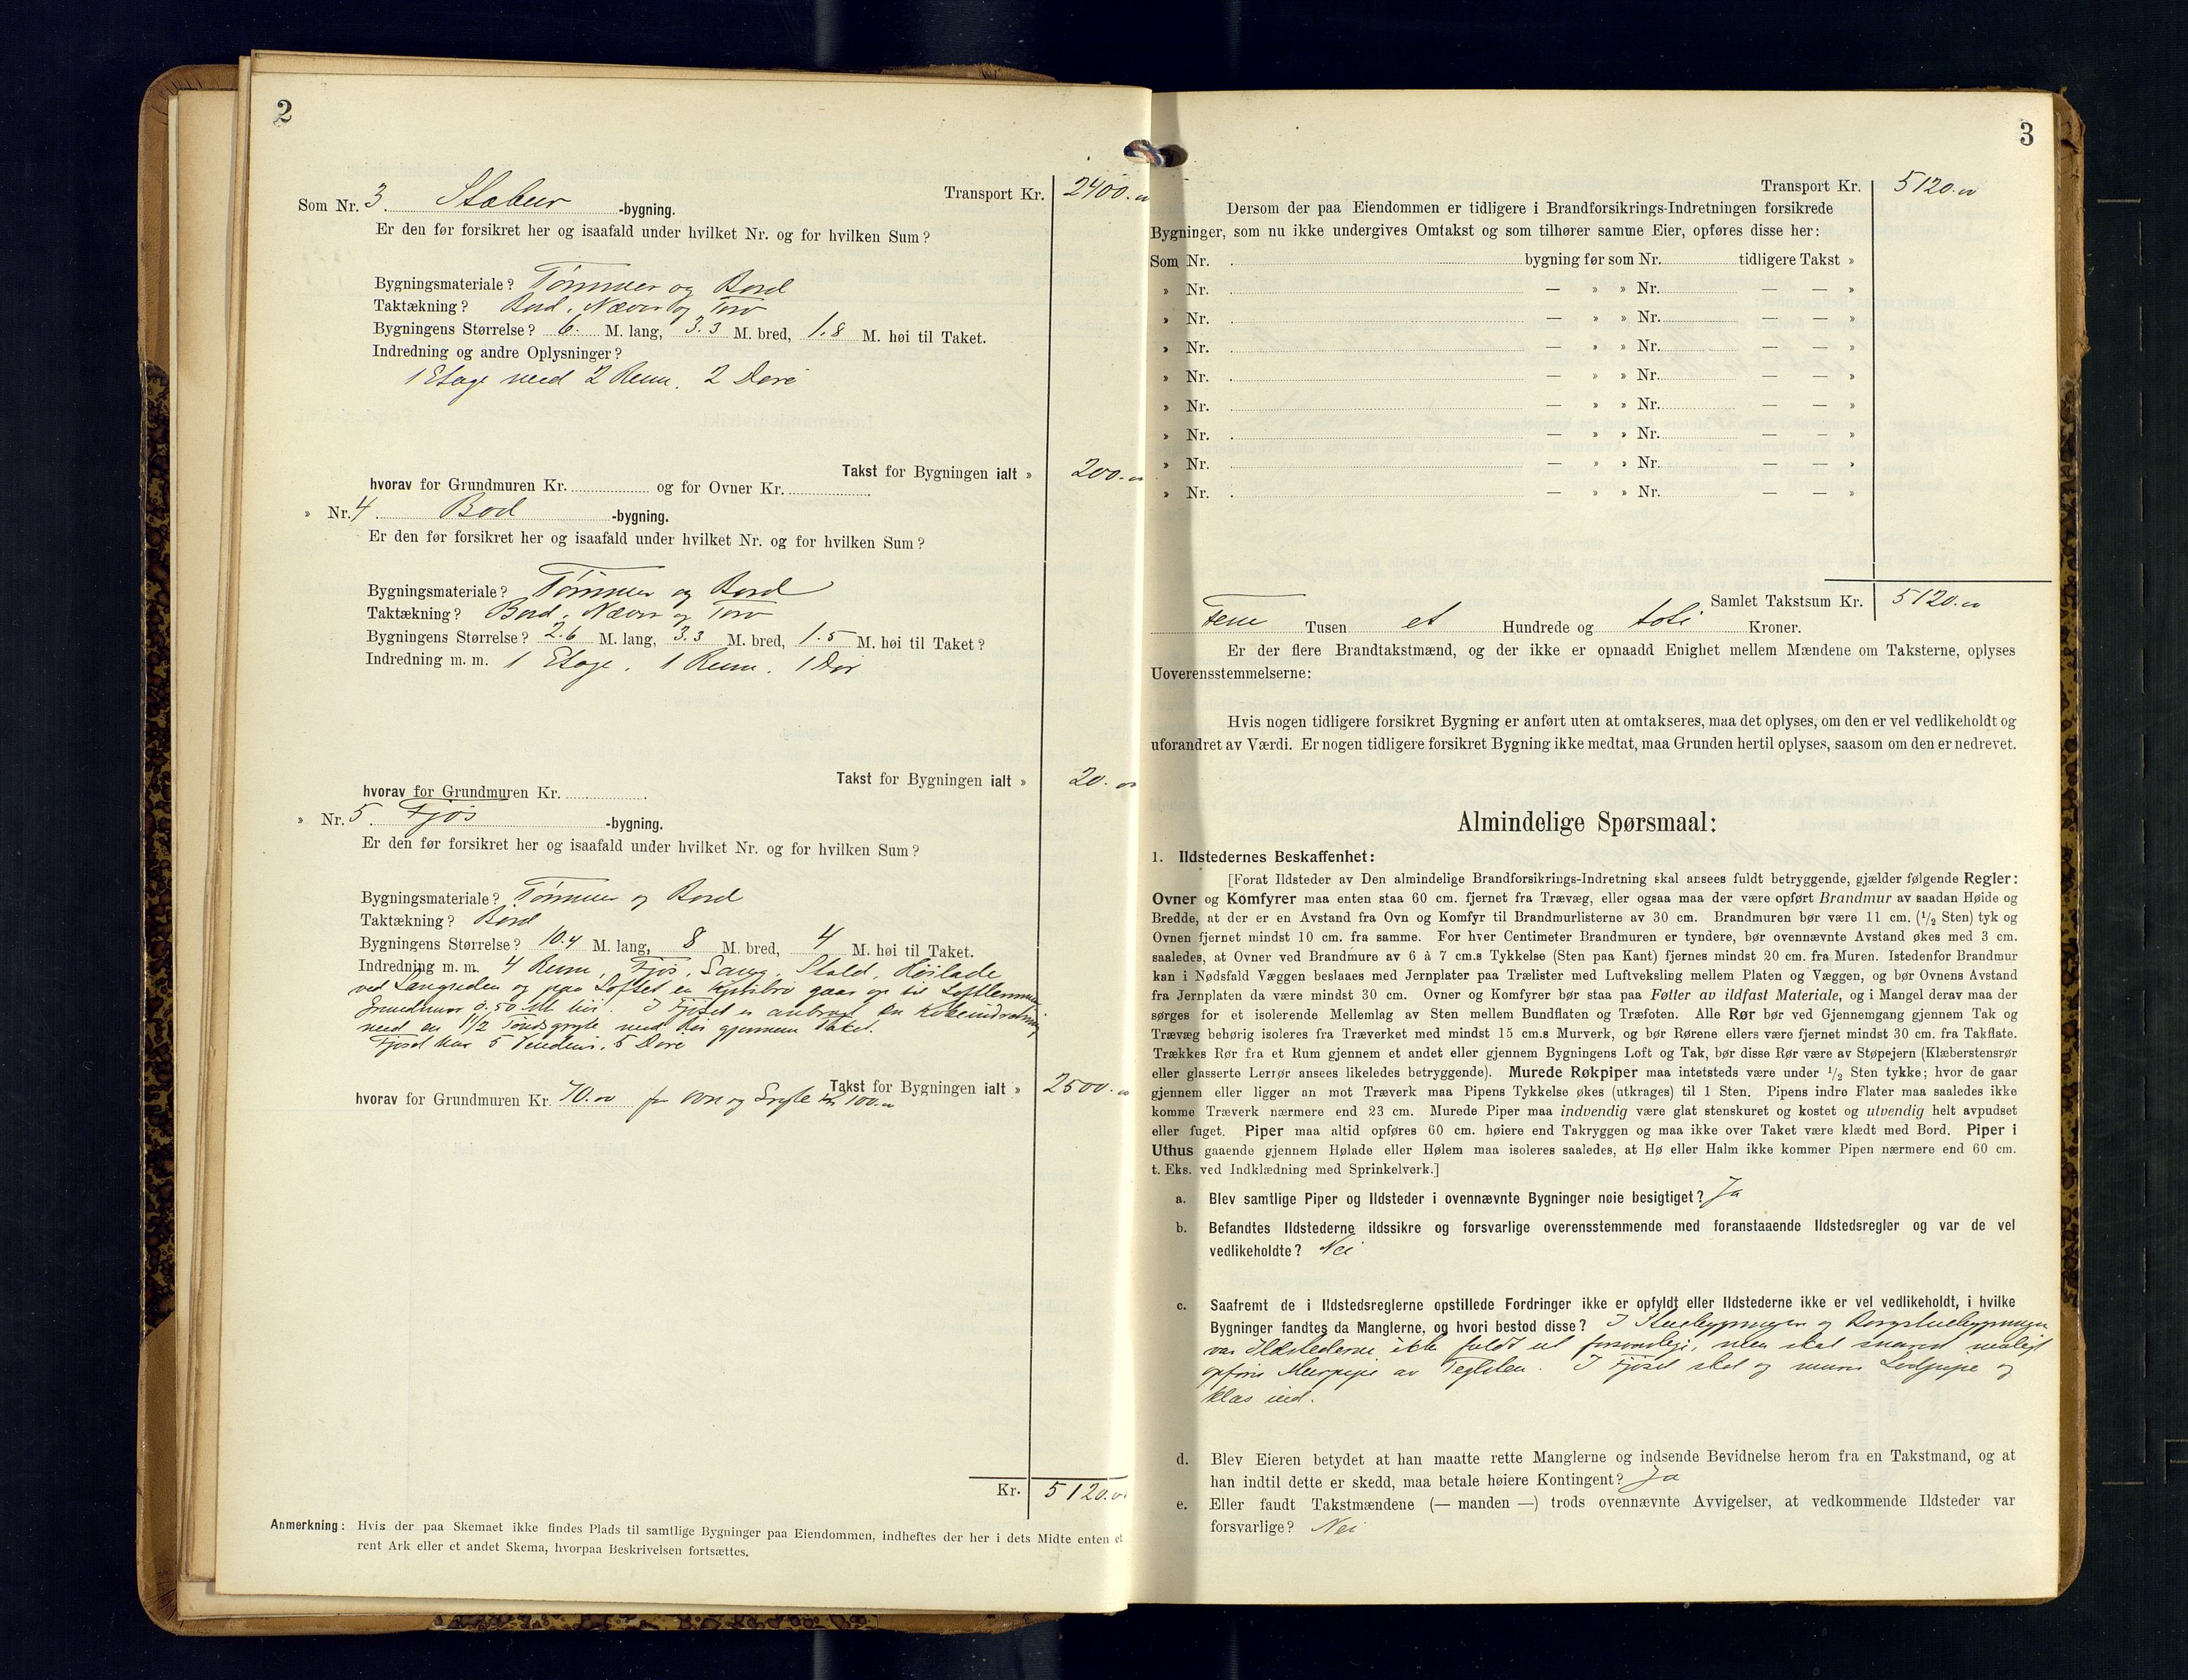 2
Transport Kr. 2400.00
Som Nr. 3. Stabur -bygning.
Er den før forsikret her og isaafald under hvilket Nr. og for hvilken Sum?
Bygningsmateriale? Tømmer og Bord
Taktækning? Bord, Næver og Torv
Bygningens Størrelse? 6. M. lang, 3.3 M. bred, 1.8 M. høi til Taket.
Indredning og andre Oplysninger?
1 Etage med 2 Rum, 2 Døre
Takst for Bygningen ialt » 200.00
hvorav for Grundmuren Kr. og for Ovner Kr.
» Nr. 4. Bod -bygning.
Er den før forsikret her og isaafald under hvilket Nr. og for hvilken Sum?
Bygningsmateriale? Tømmer og Bord
Taktækning? Bord, Næver og Torv
Bygningens Størrelse? 2.6 M. lang, 3.3 M. bred, 1.5 M. høi til Taket?
Indredning m. m. 1 Etage, 1 Rum, 1 Dør
Takst for Bygningen ialt » 20.00
hvorav for Grundmuren Kr.
» Nr. 5. Fjøs -bygning.
Er den før forsikret her og isaafald under hvilket Nr. og for hvilken Sum?
Bygningsmateriale? Tømmer og Bord
Taktækning? Bord
Bygningens Størrelse? 10.4 M. lang, 8 M. bred, 4 M. høi til Taket.
Indredning m. m. 4 Rum, Fjøs, Stald, Høilade
ved Langsiden og paa Loftet en gaar op til
Grundmur 0.50 M. høi. I Fjøset er anbragt en
med en 1 1/2 Tøndsgryte med Rør gjennem Taket.
Fjøset har 5 Vinduer, 5 Døre
Takst for Bygningen ialt » 2500.00
hvorav for Grundmuren Kr. 70.00 for Ovn og Gryte kr 100.00
Kr. 5120.00
Anmerkning: Hvis der paa Skemaet ikke findes Plads til samtlige Bygninger paa Eiendommen, indheftes der her i dets Midte enten et
rent Ark eller et andet Skema, hvorpaa Beskrivelsen fortsættes.
3
Transport Kr. 5120.00
Dersom der paa Eiendommen er tidligere i Brandforsikrings-Indretningen forsikrede
Bygninger, som nu ikke undergives Omtakst og som tilhører samme Eier, opføres disse her:
Som Nr. bygning før som Nr. tidligere Takst »
» Nr. — » » Nr. — — »
» Nr. — » » Nr. — — »
» Nr. — » » Nr. — — »
» Nr. — » » Nr. — — »
» Nr. — » » Nr. — — »
» Nr. — » » Nr. — — »
» Nr. — » » Nr. — — »
» Nr. — » » Nr. — — »
Samlet Takstsum Kr. 5120.00
Fem Tusen et Hundrede og toti Kroner.
Er der flere Brandtakstmænd, og der ikke er opnaadd Enighet mellem Mændene om Taksterne, oplyses
Uoverensstemmelserne:
Hvis nogen tidligere forsikret Bygning er anført uten at omtakseres, maa det oplyses, om den er vel vedlikeholdt og
uforandret av Værdi. Er nogen tidligere forsikret Bygning ikke medtat, maa Grunden hertil oplyses, saasom om den er nedrevet.
Almindelige Spørsmaal:
1. Ildstedernes Beskaffenhet:
[Forat Ildsteder av Den almindelige Brandforsikrings-Indretning skal ansees fuldt betryggende, gjælder følgende Regler:
Ovner og Komfyrer maa enten staa 60 cm. fjernet fra Trævæg, eller ogsaa maa der være opført Brandmur av saadan Høide og
Bredde, at der er en Avstand fra Ovn og Komfyr til Brandmurlisterne av 30 cm. Brandmuren bør være 11 cm. (1/2 Sten) tyk og
Ovnen fjernet mindst 10 cm. fra samme. For hver Centimeter Brandmuren er tyndere, bør ovennævnte Avstand økes med 3 cm.
saaledes, at Ovner ved Brandmure av 6 à 7 cm.s Tykkelse (Sten paa Kant) fjernes mindst 20 cm. fra Muren. Istedenfor Brandmur
kan i Nødsfald Væggen beslaaes med Jernplater paa Trælister med Luftveksling mellem Platen og Væggen, og bør Ovnens Avstand
fra Jernplaten da være mindst 30 cm. Ovner og Komfyrer bør staa paa Føtter av ildfast Materiale, og i Mangel derav maa der
sørges for et isolerende Mellemlag av Sten mellem Bundflaten og Træfoten. Alle Rør bør ved Gjennemgang gjennem Tak og
Trævæg behørig isoleres fra Træverket med mindst 15 cm.s Murverk, og bør Rørene ellers være fjernet mindst 30 cm. fra Takflate.
Trækkes Rør fra et Rum gjennem et andet eller gjennem Bygningens Loft og Tak, bør disse Rør være av Støpejern (Klæberstensrør
eller glasserte Lerrør ansees likeledes betryggende). Murede Røkpiper maa intetsteds være under 1/2 Sten tykke; hvor de gaar
gjennem eller ligger an mot Træverk maa Pipens Tykkelse økes (utkrages) til 1 Sten. Pipens indre Flater maa saaledes ikke
komme Træverk nærmere end 23 cm. Murede Piper maa indvendig være glat stenskuret og kostet og utvendig helt avpudset
eller fuget. Piper maa altid opføres 60 cm. høiere end Takryggen og maa ikke over Taket være klædt med Bord. Piper i
Uthus gaaende gjennem Hølade eller Hølem maa isoleres saaledes, at Hø eller Halm ikke kommer Pipen nærmere end 60 cm.
t. Eks. ved Indklædning med Sprinkelverk.]
a. Blev samtlige Piper og Ildsteder i ovennævnte Bygninger nøie besigtiget? Ja
b. Befandtes Ildstederne ildssikre og forsvarlige overensstemmende med foranstaaende Ildstedsregler og var de vel
vedlikeholdte? Nei
c. Saafremt de i Ildstedsreglerne opstillede Fordringer ikke er opfyldt eller Ildstederne ikke er vel vedlikeholdt, i hvilke
Bygninger fandtes da Manglerne, og hvori bestod disse? I Stuebygningen og Borgstuebygningen
var Ildstederne ikke fuldt ut forsvarlige, men skal snarest muligt
opføre Murpipe av Teglsten. I Fjøset skal og mures Lodpipe og
klæs ind.
d. Blev Eieren betydet at han maatte rette Manglerne og indsende Bevidnelse herom fra en Takstmand, og at
han indtil dette er skedd, maa betale høiere Kontingent? Ja
e. Eller faudt Takstmændene (— manden —) trods ovennævnte Avvigelser, at vedkommende Ildsteder var
forsvarlige? Nei